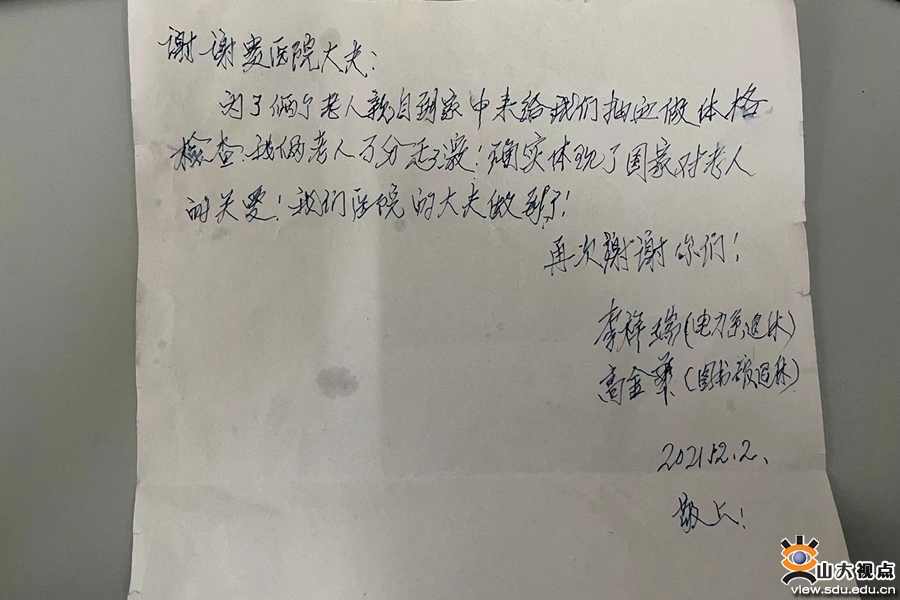 谢谢贵医院大夫:
为了俩个老人亲自到家中来给我们抽血做体格
检查.我俩老人万分感激!确实体现了国家对老人
的关爱!我们医院的大夫做到了!
再次谢谢你们!
李祥瑞(电力系退休)
高金华(图书馆退休)
2021.12.2.
敬上!
山大视点
view.sdu.edu.cn